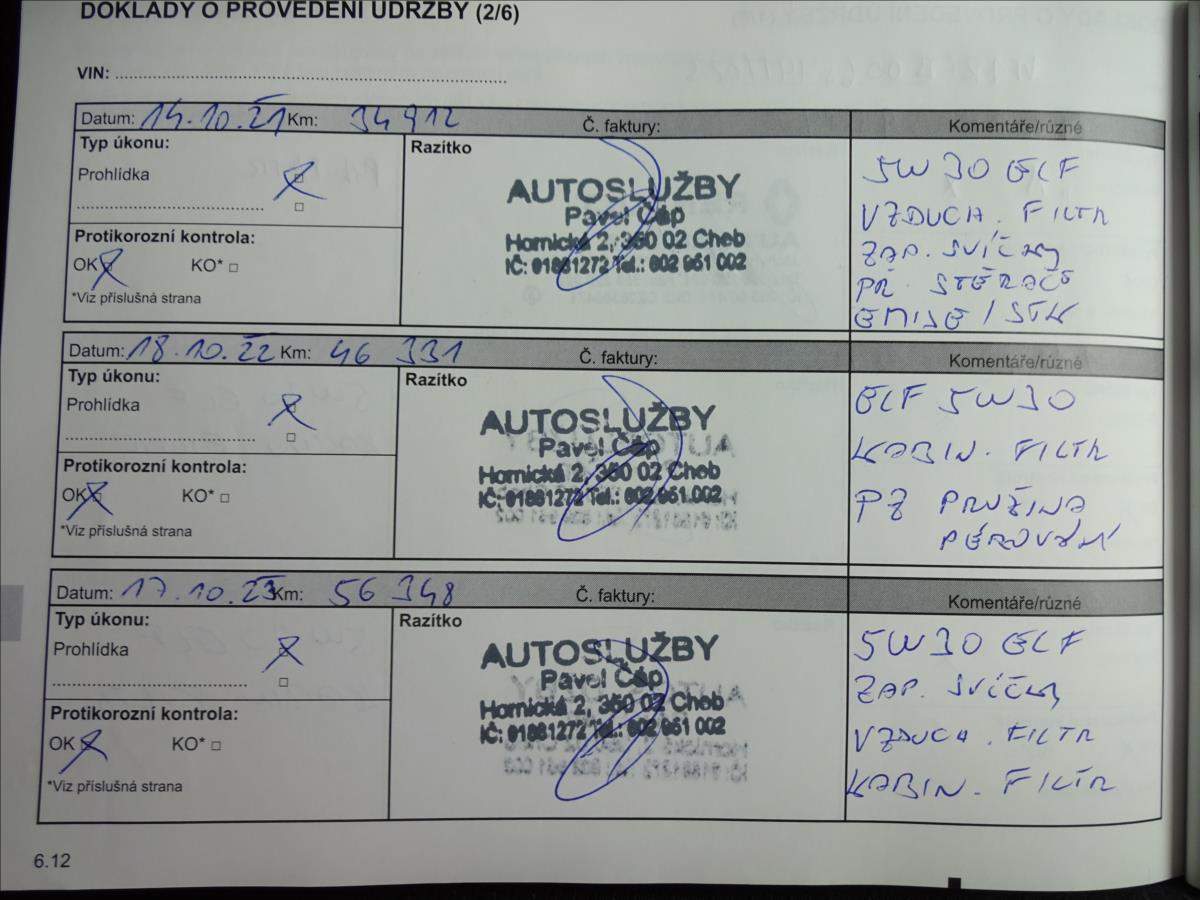 DOKLADY O PROVEDENÍ ÚDRŽBY (2/6)
VIN:
Datum: 14.10.21 Km: 34912 Č. faktury: Komentáře/různé
Typ úkonu:
Prohlídka
Protikorozní kontrola:
OK KO*
*Viz příslušná strana
Razítko
AUTOSLUŽBY
Pavel Čáp
Hornická 2, 350 02 Cheb
IČ: 01881272 Tel.: 602 951 002
5W30 ELF
VZDUCH. FILTR
ZAP. SVÍČKY
PŘ. STĚRAČE
EMISE / STK
Datum: 18.10.22 Km: 46 331 Č. faktury: Komentáře/různé
Typ úkonu:
Prohlídka
Protikorozní kontrola:
OK KO*
*Viz příslušná strana
Razítko
AUTOSLUŽBY
Pavel Čáp
Hornická 2, 350 02 Cheb
IČ: 01881272 Tel.: 602 951 002
ELF 5W30
KABIN. FILTR
PZ PRUŽINA
PÉROVÁNÍ
Datum: 17.10.23 Km: 56 348 Č. faktury: Komentáře/různé
Typ úkonu:
Prohlídka
Protikorozní kontrola:
OK KO*
*Viz příslušná strana
Razítko
AUTOSLUŽBY
Pavel Čáp
Hornická 2, 350 02 Cheb
IČ: 01881272 Tel.: 602 951 002
5W30 ELF
ZAP. SVÍČKY
VZDUCH. FILTR
KABIN. FILTR
6.12